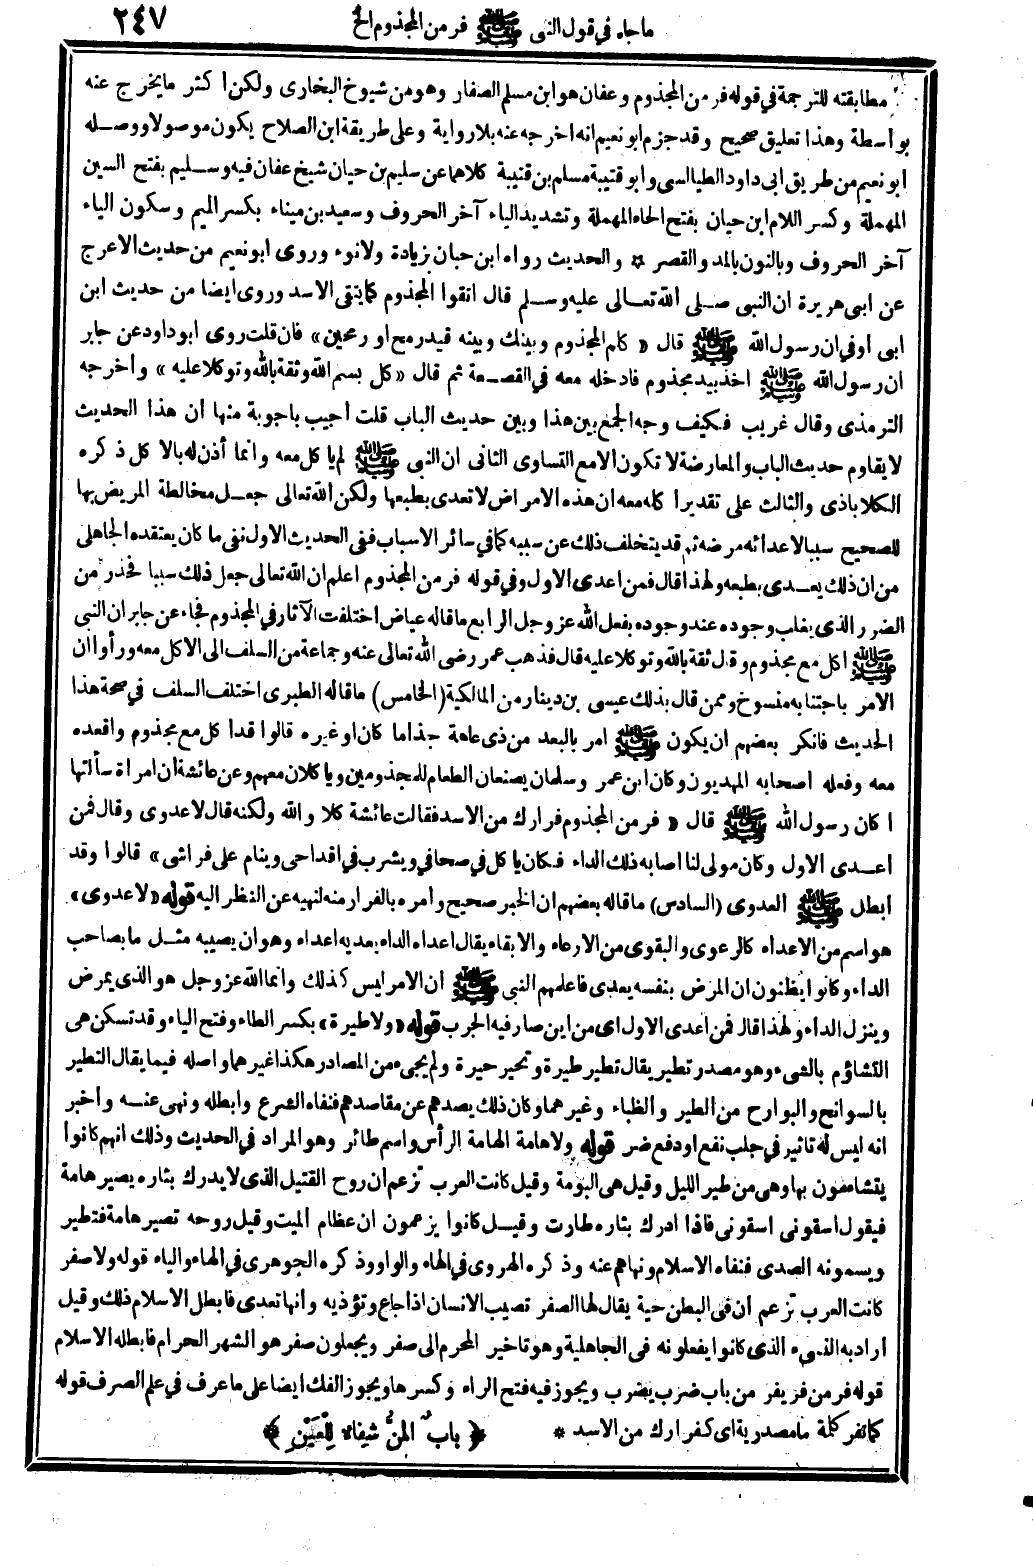 ما جاء في قول النبي ﷺ فر من المجذوم الخ ٢٤٧
مطابقته للترجمة في قوله فر من المجذوم وعفان هو ابن مسلم الصفار وهو من شيوخ البخارى ولكن أكثر ما يخرج عنه
بواسطة وهذا تعليق صحيح وقد جزم ابو نعيم انه اخرجه عنه بلا رواية وعلى طريقة ابن الصلاح يكون موصولا ووصله
ابو نعيم من طريق ابى داود الطيالسى وابو قتيبة مسلم بن قتيبة كلاهما عن سليم بن حيان شيخ عفان فيه وسليم بفتح السين
المهملة وكسر اللام ابن حيان بفتح الحاء المهملة وتشديد الياء آخر الحروف وسعيد بن ميناء بكسر الميم وسكون الياء
آخر الحروف وبالنون بالمد والقصر * والحديث رواه ابن حبان زيادة ولا نوء وروى ابو نعيم من حديث الاعرج
عن ابى هريرة ان النبى صلى الله تعالى عليه وسلم قال اتقوا المجذوم كما يتقى الاسد وروى ايضا من حديث ابن
ابى أوفى ان رسول الله ﷺ قال « كلم المجذوم وبينك وبينه قيد رمح او رمحين » فان قلت روى ابو داود عن جابر
ان رسول الله ﷺ اخذ بيد مجذوم فادخله معه في القصعة ثم قال « كل بسم الله وثقة بالله وتوكلا عليه » وأخرجه
الترمذى وقال غريب فكيف وجه الجمع بين هذا وبين حديث الباب قلت أجيب باجوبة منها ان هذا الحديث
لا يقاوم حديث الباب والمعارضة لا تكون الا مع التساوى الثانى ان النبى ﷺ لم يا كل معه وانما أذن له بالا كل ذكره
الكلاباذى والثالث على تقدير اكله معه ان هذه الامراض لا تعدى بطبعها ولكن الله تعالى جعل مخالطة المريض بها
للصحيح سببا لاعدائه مرضه ثم قد يتخلف ذلك عن سببه كما في سائر الاسباب ففى الحديث الاول نفى ما كان يعتقده الجاهلى
من ان ذلك يعدى بطبعه ولهذا قال فمن اعدى الاول وفي قوله فر من المجذوم اعلم ان الله تعالى جعل ذلك سببا فحذر من
الضرر الذى يغلب وجوده عند وجوده بفعل الله عز وجل الرابع ما قاله عياض اختلفت الآثار في المجذوم فجاء عن جابر ان النبى
ﷺ اكل مع مجذوم وقال ثقة بالله وتوكلا عليه قال فذهب عمر رضى الله تعالى عنه وجماعة من السلف الى الاكل معه ورأوا ان
الامر باجتنابه منسوخ وممن قال بذلك عيسى بن دينار من المالكية (الخامس) ما قاله الطبرى اختلف السلف في صحة هذا
الحديث فانكر بعضهم ان يكون ﷺ امر بالبعد من ذى عاهة جذاما كان او غيره قالوا قد اكل مع مجذوم واقعده
معه وفعله أصحابه المهديون وكان ابن عمر وسلمان يصنعان الطعام للمجذومين ويا كلان معهم وعن عائشة ان امرأة سألتها
ا كان رسول الله ﷺ قال « فر من المجذوم فرارك من الاسد فقالت عائشة كلا والله ولكنه قال لا عدوى وقال فمن
اعدى الاول وكان مولى لنا اصابه ذلك الداء فكان يا كل في صحافى ويشرب في اقداحى وينام على فراشى » قالوا وقد
ابطل ﷺ العدوى (السادس) ما قاله بعضهم ان الخبر صحيح وأمره بالفرار منه لنهيه عن النظر اليه قوله « لا عدوى »
هو اسم من الاعداء كالرعوى والبقوى من الارعاء والابقاء يقال اعداه الداء يعديه اعداء وهو ان يصيبه مثل ما بصاحب
الداء وكانوا يظنون ان المرض بنفسه يعدى فاعلمهم النبي ﷺ ان الامر ليس كذلك وانما الله عز وجل هو الذى يمرض
وينزل الداء ولهذا قال فمن أعدى الاول اى من اين صار فيه الجرب قوله « ولا طيرة » بكسر الطاء وفتح الياء وقد تسكن هى
التشاؤم بالشىء وهو مصدر تطير يقال تطير طيرة وتحير حيرة ولم يجىء من المصادر هكذا غيرهما واصله فيما يقال التطير
بالسوانح والبوارح من الطير والظباء وغيرهما وكان ذلك يصدهم عن مقاصدهم فنفاه الشرع وابطله ونهى عنه وأخبر
انه ليس له تاثير في جلب نفع او دفع ضر قوله ولا هامة الهامة الرأس واسم طائر وهو المراد في الحديث وذلك انهم كانوا
يتشاءمون بها وهى من طير الليل وقيل هى البومة وقيل كانت العرب تزعم ان روح القتيل الذى لا يدرك بثاره يصير هامة
فيقول اسقونى اسقونى فاذا ادرك بثاره طارت وقيل كانوا يزعمون ان عظام الميت وقيل روحه تصير هامة فتطير
ويسمونه الصدى فنفاه الاسلام ونهاهم عنه وذكره الهروى في الهاء والواو وذكره الجوهرى في الهاء والياء قوله ولا صفر
كانت العرب تزعم ان فى البطن حية يقال لها الصفر تصيب الانسان اذا جاع وتؤذيه وانها تعدى فابطل الاسلام ذلك وقيل
أراد به النسىء الذى كانوا يفعلونه فى الجاهلية وهو تاخير المحرم الى صفر ويجعلون صفر هو الشهر الحرام فابطله الاسلام
قوله فر من فر يفر من باب ضرب يضرب ويجوز فيه فتح الراء وكسرها ويجوز الفك ايضا على ما عرف في علم الصرف قوله
كما تفر كلمة ما مصدرية اى كفرارك من الاسد * ﴿ بابٌ المَنُّ شِفَاءٌ لِلْعَيْنِ ﴾